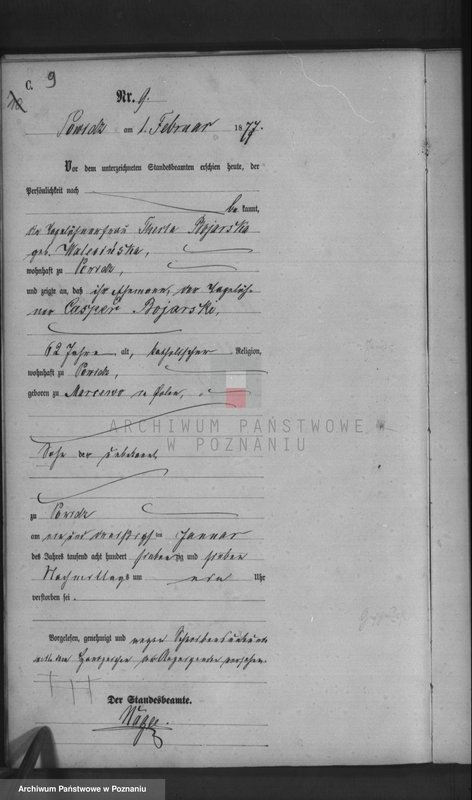 C. 9
Nr. 9.
Powidz am 1. Februar 1877.
Vor dem unterzeichneten Standesbeamten erschien heute, der
Persönlichkeit nach
be kannt,
die Tagelöhnerfrau Thekla Bojarska
geb.
wohnhaft zu Powidz,
und zeigte an, daß ihr Ehemann, der Tagelöh-
ner Casper Bojarski,
62 Jahre alt, katholischer Religion,
wohnhaft zu Powidz,
geboren zu in Polen,
ARCHIWUM PAŃSTWOWE
W POZNANIU
Sohn der unbekannt
zu Powidz
am ein und dreißigsten Januar
des Jahres tausend acht hundert siebenzig und sieben
Nachmittags um Uhr
verstorben sei.
Vorgelesen, genehmigt und wegen Schreibensunkunde
mit dem Handzeichen der Anzeigenden versehen.
+++
Der Standesbeamte.
Archiwum Państwowe w Poznaniu